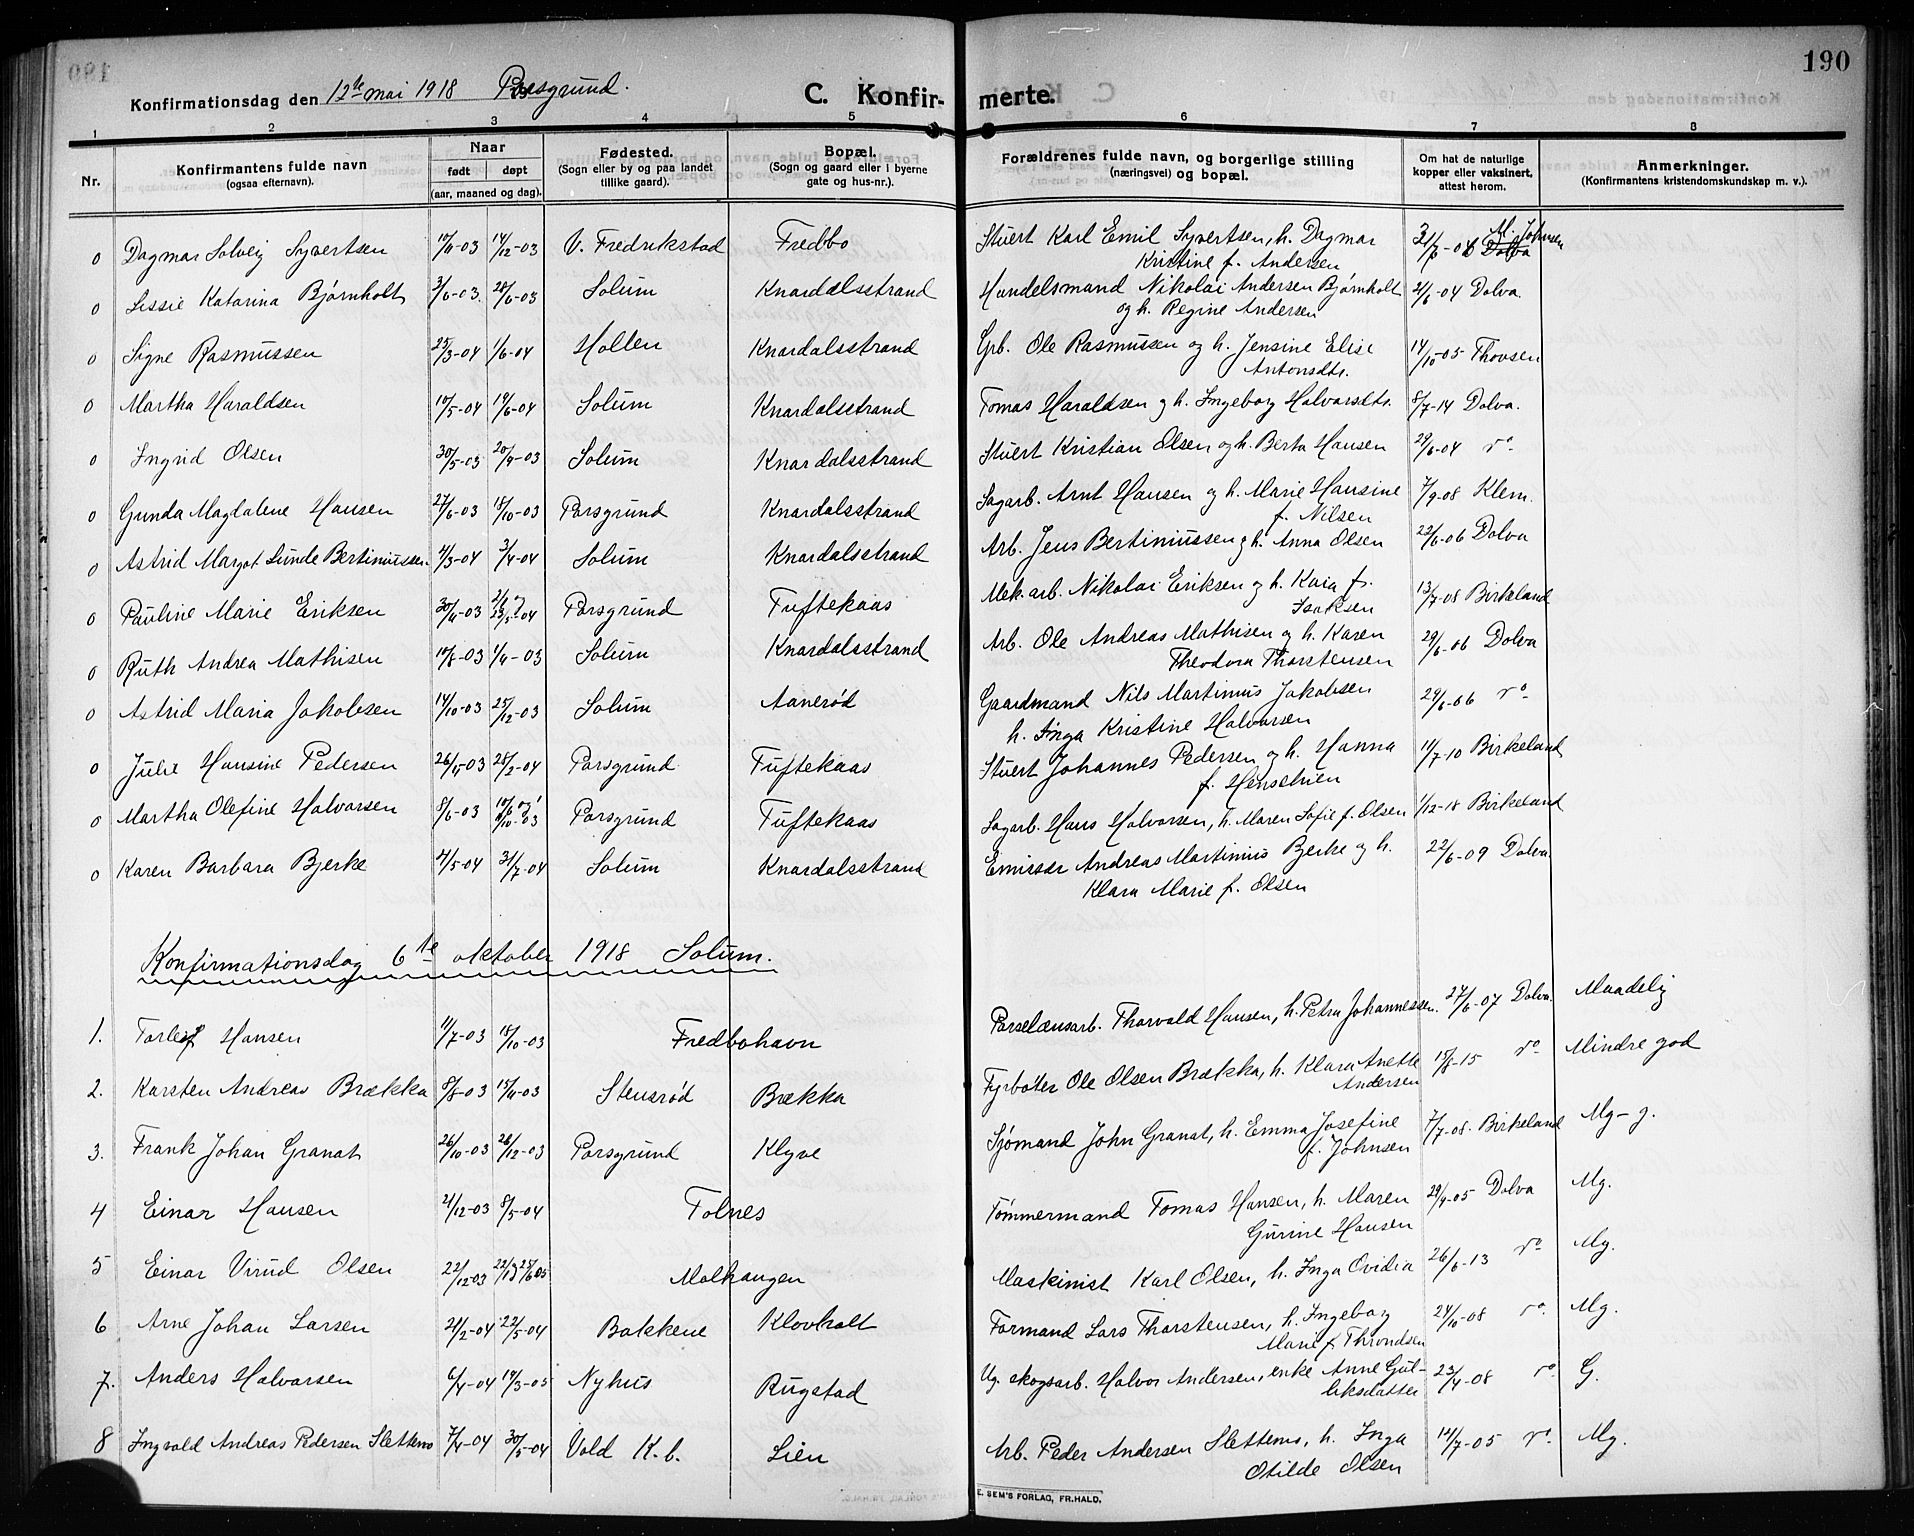 190
Konfirmationsdag den 12te mai 1918 Porsgrund.
C. Konfirmerte.
1 2 3 4 5 6 7 8
Nr.
Konfirmantens fulde navn
(ogsaa efternavn).
Naar
født døpt
(aar, maaned og dag).
Fødested.
(Sogn eller by og paa landet
tillike gaard).
Bopæl.
(Sogn og gaard eller i byerne
gate og hus-nr.).
Forældrenes fulde navn, og borgerlige stilling
(næringsvei) og bopæl.
Om hat de naturlige
kopper eller vaksinert,
attest herom.
Anmerkninger.
(Konfirmantens kristendomskundskap m. v.).
0 Dagmar Solveig Syvertsen 10/11-03 14/12-03 V. Fredrikstad Fredbo Stuert Karl Emil Syvertsen, h. Dagmar M. Johnsen
Kristine f. Andersen
0 Lissie Katarina Bjørnholt 3/6-03. 28/6-03 Solum Knardalsstrand Handelsmand Nikolai Andersen Bjørnholt 21/6-04 Dolva.
og h. Regine Andersen
0 Signe Rasmussen 25/3-04 1/6-04 Hollen Knardalsstrand Grb. Ole Rasmussen og h. Jensine Elise 14/10-05 Thovsen
Antonsdtr.
0 Martha Haraldsen 10/5-04 19/6-04 Solum Knardalsstrand Tomas Haraldsen og h. Ingeborg Halvorsdtr. 8/7-14 Dolva.
0 Ingrid Olsen 30/5-03 20/9-03 Solum Knardalsstrand Stuert Kristian Olsen og h. Berta Hansen 29/6-04 do.
0 Gunda Magdalene Hansen 27/6-03 18/10-03 Porsgrund Knardalsstrand Sagarb. Arnt Hansen og h. Marie Hansine 7/9-08 Klem.
f. Nilsen
0 Astrid Margot Lunde Bertinussen. 4/3-04 3/4-04 Solum Knardalsstrand Arb. Jens Bertinussen og h. Anna Olsen 23/6-06 Dolva
0 Pauline Marie Eriksen 30/11-03 Porsgrund Tuftekaas Mek. arb. Nikolai Eriksen og h. Kaia f. 13/7-08 Birkeland
Isaksen
0 Ruth Andrea Mathisen 10/8-03 1/11-03 Solum Knardalsstrand Arb. Ole Andreas Mathisen og h. Karen 29/6-06 Dolva
Theodora Thorstensen
0 Astrid Maria Jakobsen 14/10-03 25/12-03 Solum Aanerød Gaardmand Nils Martinius Jakobsen 29/6-06 do.
h. Inga Kristine Halvorsen
0 Julie Hansine Pedersen 26/11-03 28/2-04 Porsgrund Tuftekaas Stuert Johannes Pedersen og h. Hanna 11/7-10 Birkeland
f. Henschien
0 Martha Olefine Halvorsen 8/6-03 Porsgrund Tuftekaas Sagarb. Hans Halvorsen, h. Maren Sofie f. Olsen 1/12-18 Birkeland
0 Karen Barbara Bjerke 4/5-04 31/7-04 Solum Knardalsstrand Emissær Andreas Martinius Bjerke og h. 22/6-09 Dolva.
Klara Marie f. Olsen
Konfirmationsdag 6te oktober 1918 Solum.
1. Torleif Hansen 11/7-03 18/10-03 Fredbohavn Porselænsarb. Thorvald Hansen, h. Petra Johannessen. 27/6-07 Dolva. Maadelig
2. Karsten Andreas Brækka 8/8-03 15/11-03 Stensrød Brækka Fyrbøter Ole Olsen Brækka, h. Klara Anette 15/8-15 do Mindre god
Andersen
3. Frank Johan Granat 26/10-03 26/12-03 Porsgrund Klyve Sjømand John Granat, h. Emma Josefine 7/7-08. Birkeland Mg-g.
f. Johnsen
4 Einar Hansen 21/12-03 8/5-04 Tolnes Tømmermand Tomas Hansen, h. Maren 29/9-05 Dolva Mg.
Gurine Hansen
5 Einar Virud Olsen 22/12-03 Molhaugen Maskinist Karl Olsen, h. Inga Ovidia 26/6-13 do Mg.
6 Arne Johan Larsen 21/2-04 22/5-04 Bakkene Klovholt Formand Lars Thorstensen, h. Ingeborg 24/10-08 do. Mg.
Marie f. Throndsen
7. Anders Halvorsen 6/4-04 19/3-05 Nyhus Rugstad Ug. skogsarb. Halvor Andersen, enke Anne Gul- 23/4-08 do. G.
liksdatter
8 Ingvald Andreas Pedersen Sletteno 7/4-04 30/5-04 Vold K.b. Lien Arb. Peder Andersen Slettemo, h. Inga 12/7-05 do. Mg.
Otilde Olsen
E. SEM'S FORLAG, FR.HALD.